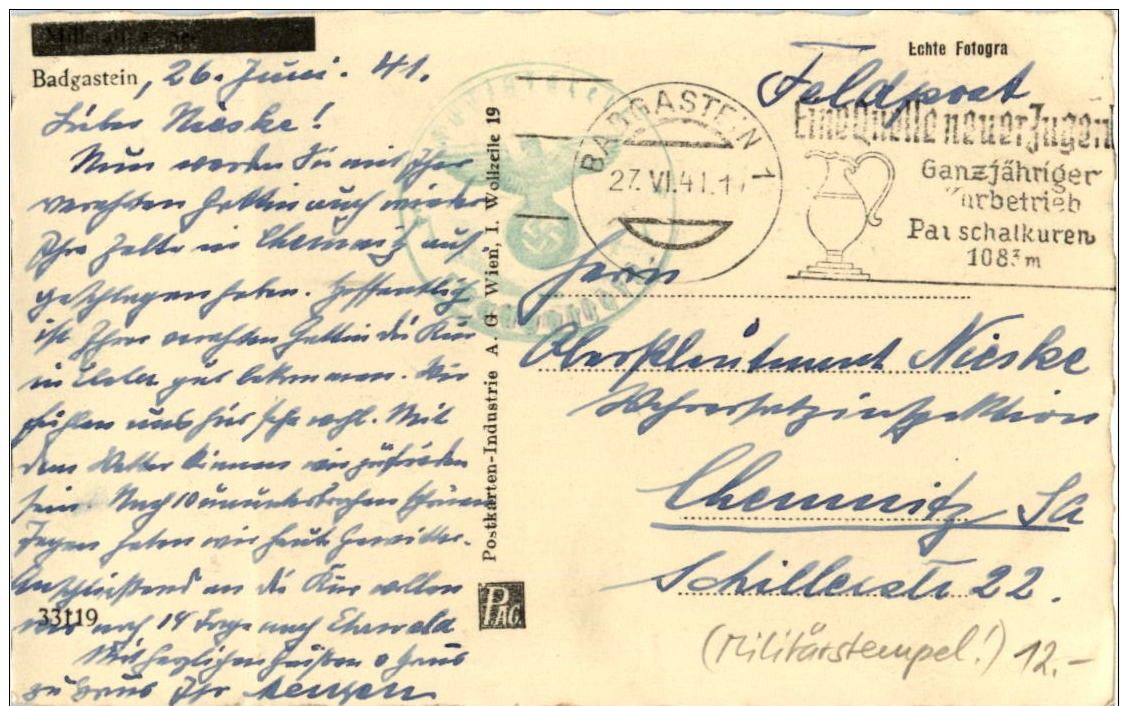 Badgastein, 26. Juni. 41.
Lieber Nieske!
Nun werden Sie mit Ihrer
verehrten Gattin auch wieder
Ihre Zelte in Chemnitz auf
geschlagen haben. Hoffentlich
ist Ihrer verehrten Gattin die Kur
in Elster gut bekommen. Wir
fühlen uns hier sehr wohl. Mit
dem Wetter können wir zufrieden
sein. Nach 10 ununterbrochen schönen
Tagen haben wir heute Gewitter.
Anschließend an die Kur wollen
wir noch 14 Tage nach Ehrwald
Mit herzlichen Grüßen v Haus
zu Haus Ihr
33119
Postkarten-Industrie A. G. Wien, I. Wollzeile 19
PAG.
Echte Fotogra
Feldpost
BADGASTEIN 1
27. VI. 41. 1
Eine Quelle neuer Jugen
Ganzjähriger
urbetrieb
Pauschalkuren
1083 m
Herrn
Oberstleutnant Nieske
Wehrersatzinspektion
Chemnitz, Sa
Schillerstr 22.
(Militärstempel!) 12.-